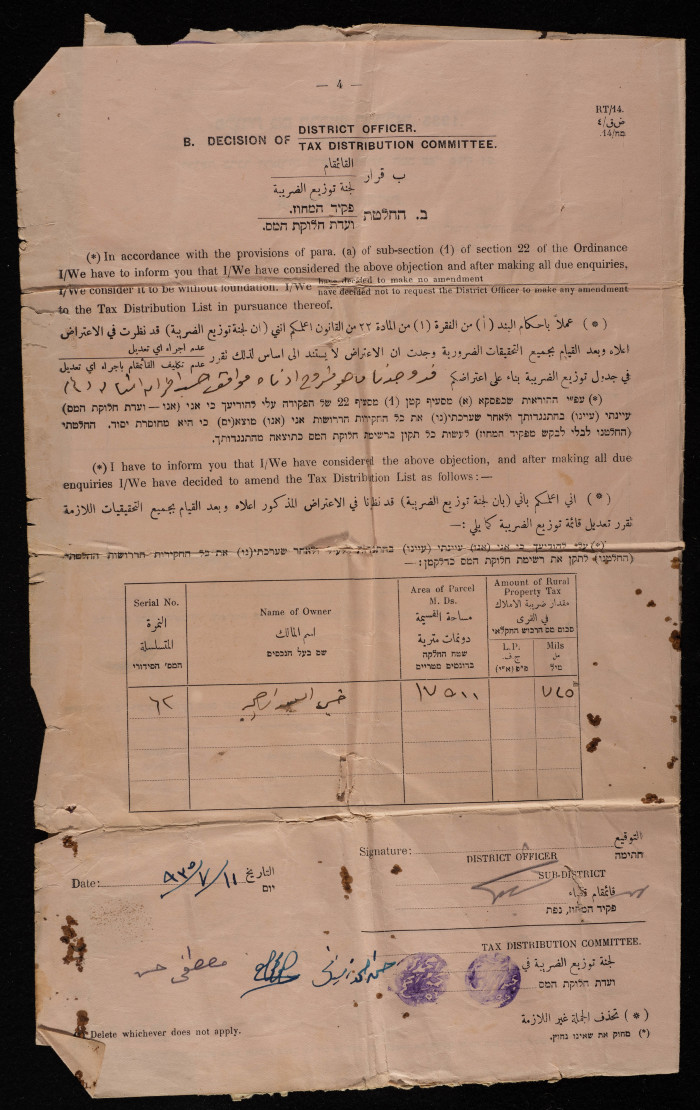 — 4 —
RT/14.
ض ق/٤
מח/14.
B. DECISION OF DISTRICT OFFICER.
TAX DISTRIBUTION COMMITTEE.
ب قرار القائمقام
لجنة توزيع الضريبة
ב. החלטת פקיד המחוז.
ועדת חלוקת המס.
(*) In accordance with the provisions of para. (a) of sub-section (1) of section 22 of the Ordinance
I/We have to inform you that I/We have considered the above objection and after making all due enquiries,
I/We consider it to be without foundation. I/We have decided to make no amendment
have decided not to request the District Officer to make any amendment
to the Tax Distribution List in pursuance thereof.
( * ) عملاً باحكام البند (أ) من الفقرة (١) من المادة ٢٢ من القانون اعلمكم انني (ان لجنة توزيع الضريبة) قد نظرت في الاعتراض
اعلاه وبعد القيام بجميع التحقيقات الضرورية وجدت ان الاعتراض لا يستند الى اساس لذلك تقرر عدم اجراء اي تعديل
عدم تكليف القائمقام باجراء اي تعديل
في جدول توزيع الضريبة بناء على اعتراضكم
(*) עפ״י ההוראות שבפסקא (א) מסעיף קטן (1) מסעיף 22 של הפקודה עלי להודיעך כי אני (אנו — ועדת חלוקת המס)
עיינתי (עיינו) בהתנגדותך ולאחר שערכתי(נו) את כל החקירות הדרושות אני (אנו) מוצא(ים) כי היא מחוסרת יסוד. החלטתי
(החלטנו לבלי לבקש מפקיד המחוז) לעשות כל תקון ברשימת חלוקת המס כתוצאה מהתנגדותך.
(*) I have to inform you that I/We have considered the above objection, and after making all due
enquiries I/We have decided to amend the Tax Distribution List as follows: —
( * ) اني اعلمكم باني (بان لجنة توزيع الضريبة) قد نظرنا في الاعتراض المذكور اعلاه وبعد القيام بجميع التحقيقات اللازمة
تقرر تعديل قائمة توزيع الضريبة كما يلي :—
(*) עלי להודיעך כי אני (אנו) עיינתי (עיינו) בהתנגדותך דלעיל ולאחר שערכתי(נו) את כל החקירות הדרושות החלטתי
(החלטנו) לתקן את רשימת חלוקת המס כדלקמן: —
Serial No.
النمرة
المتسلسلة
המס׳ הסידורי
Name of Owner
اسم المالك
שם בעל הנכסים
Area of Parcel
M. Ds.
مساحة القسيمة
دونمات مترية
שטח החלקה
בדונמים מטריים
Amount of Rural
Property Tax
مقدار ضريبة الاملاك
في القرى
סכום מס הרכוש החקלאי
L.P.
ج.ف.
מ״פ (א״י)
Mils
مل
מיל
٦٢
١٧٥٠٠
٧٤٥
Signature:
التوقيع
חתימה
DISTRICT OFFICER
SUB-DISTRICT
قائمقام قضاء
פקיד המחוז, נפת
Date:
٩٣٥/٧/١١
التاريخ
יום
TAX DISTRIBUTION COMMITTEE.
لجنة توزيع الضريبة في
ועדת חלוקת המס
مصطفى حسن
(*) Delete whichever does not apply.
( * ) تحذف الجملة غير اللازمة
(*) מחוק את שאינו נחוץ.